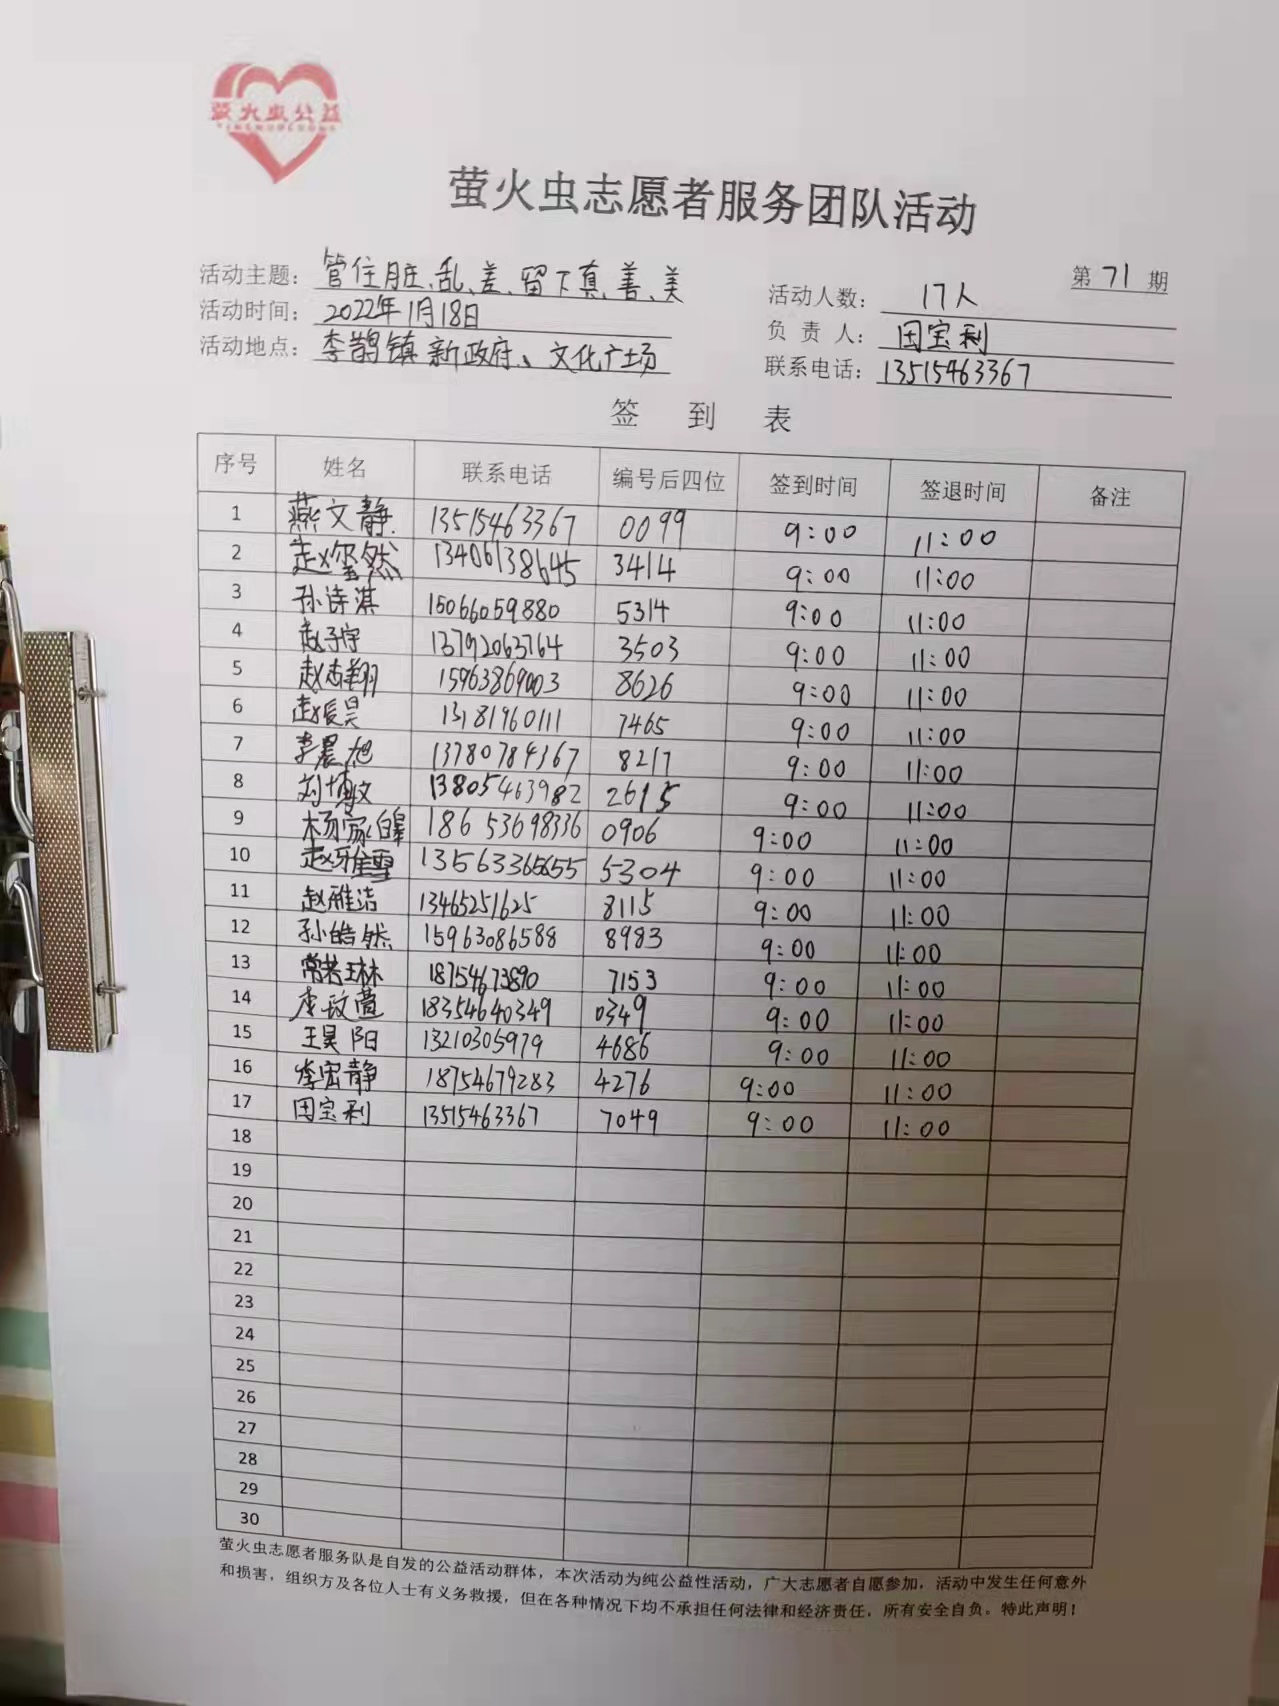 萤火虫公益
萤火虫志愿者服务团队活动
第 71 期
活动主题：管住脏、乱、差、留下真、善、美
活动时间：2022年1月18日
活动地点：李鹊镇新政府、文化广场
活动人数：17人
负 责 人：田宝利
联系电话：13515463367
签 到 表
序号 姓名 联系电话 编号后四位 签到时间 签退时间 备注
1 燕文静 13515463367 0099 9:00 11:00
2 赵玺然 13406138645 3414 9:00 11:00
3 孙诗淇 15066059880 5314 9:00 11:00
4 赵子宇 13792063764 3503 9:00 11:00
5 赵志翔 15963869003 8626 9:00 11:00
6 赵辰昊 13181960111 7465 9:00 11:00
7 李晨旭 13780784367 8217 9:00 11:00
8 刘博文 13805463982 2615 9:00 11:00
9 杨家皞 18653698336 0906 9:00 11:00
10 赵雅雪 13563365655 5304 9:00 11:00
11 赵雅洁 13465251625 8115 9:00 11:00
12 孙皓然 15963086588 8983 9:00 11:00
13 常若琳 18754673890 7153 9:00 11:00
14 李玟萱 18354640349 0349 9:00 11:00
15 王昊阳 13210305979 4686 9:00 11:00
16 李宏静 18754679283 4276 9:00 11:00
17 田宝利 13515463367 7049 9:00 11:00
18
19
20
21
22
23
24
25
26
27
28
29
30
萤火虫志愿者服务队是自发的公益活动群体，本次活动为纯公益性活动，广大志愿者自愿参加，活动中发生任何意外
和损害，组织方及各位人士有义务救援，但在各种情况下均不承担任何法律和经济责任，所有安全自负。特此声明！